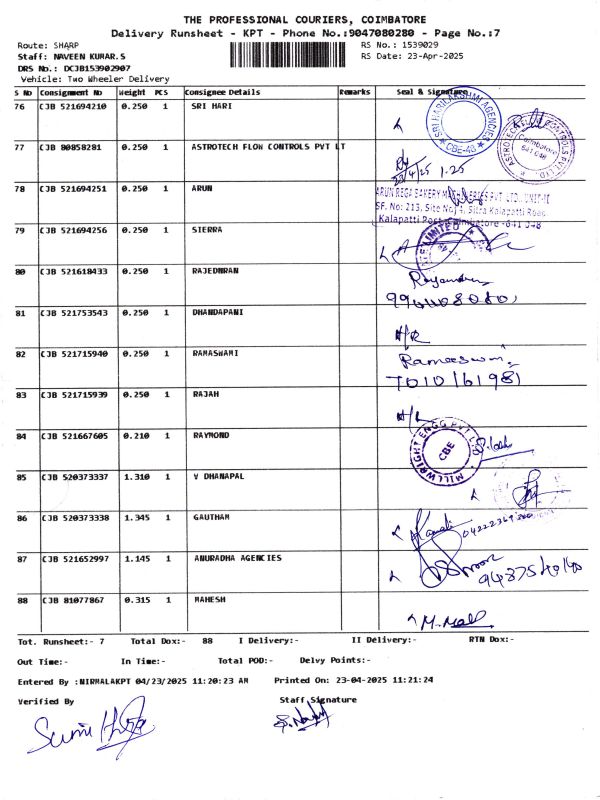 THE PROFESSIONAL COURIERS, COIMBATORE
Delivery Runsheet - KPT - Phone No.:9047080280 - Page No.:7
Route: SHARP RS No.: 1539029
Staff: NAVEEN KUMAR.S RS Date: 23-Apr-2025
DRS No.: DCJB153902907
Vehicle: Two Wheeler Delivery
S No Consignment No Weight PCS Consignee Details Remarks Seal & Signature
76 CJB 521694210 0.250 1 SRI HARI
SRI HARILAKSHMI AGENCIES CBE-48
77 CJB 80858281 0.250 1 ASTROTECH FLOW CONTROLS PVT LT
Coimbatore 641 048
23/4/25 1.25
78 CJB 521694251 0.250 1 ARUN
SF. No: 213, Site No 4, Sitra Kalapatti Road,
Kalapatti Post, Coimbatore - 641 048
79 CJB 521694256 0.250 1 SIERRA
LIMITED
80 CJB 521618433 0.250 1 RAJEDNRAN
Rajendran
81 CJB 521753543 0.250 1 DHANDAPANI
H/R
82 CJB 521715940 0.250 1 RAMASWAMI
83 CJB 521715939 0.250 1 RAJAH
H/R
84 CJB 521667605 0.210 1 RAYMOND
MILLWRIGHT ENGG PVT LTD CBE
85 CJB 520373337 1.310 1 V DHANAPAL
86 CJB 520373338 1.345 1 GAUTHAM
87 CJB 521652997 1.145 1 ANURADHA AGENCIES
88 CJB 81077867 0.315 1 MAHESH
Tot. Runsheet:- 7 Total Dox:- 88 I Delivery:- II Delivery:- RTN Dox:-
Out Time:- In Time:- Total POD:- Delvy Points:-
Entered By :NIRMALAKPT 04/23/2025 11:20:23 AM Printed On: 23-04-2025 11:21:24
Verified By Staff Signature